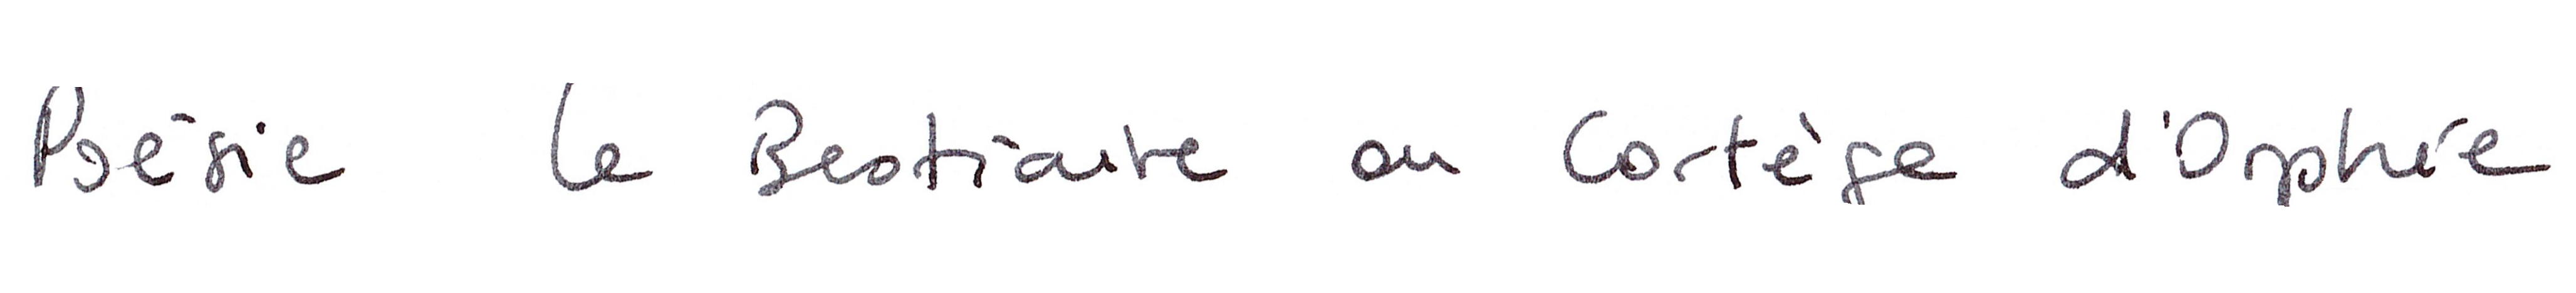 Poésie le Bestiaire ou Cortège d'Orphée